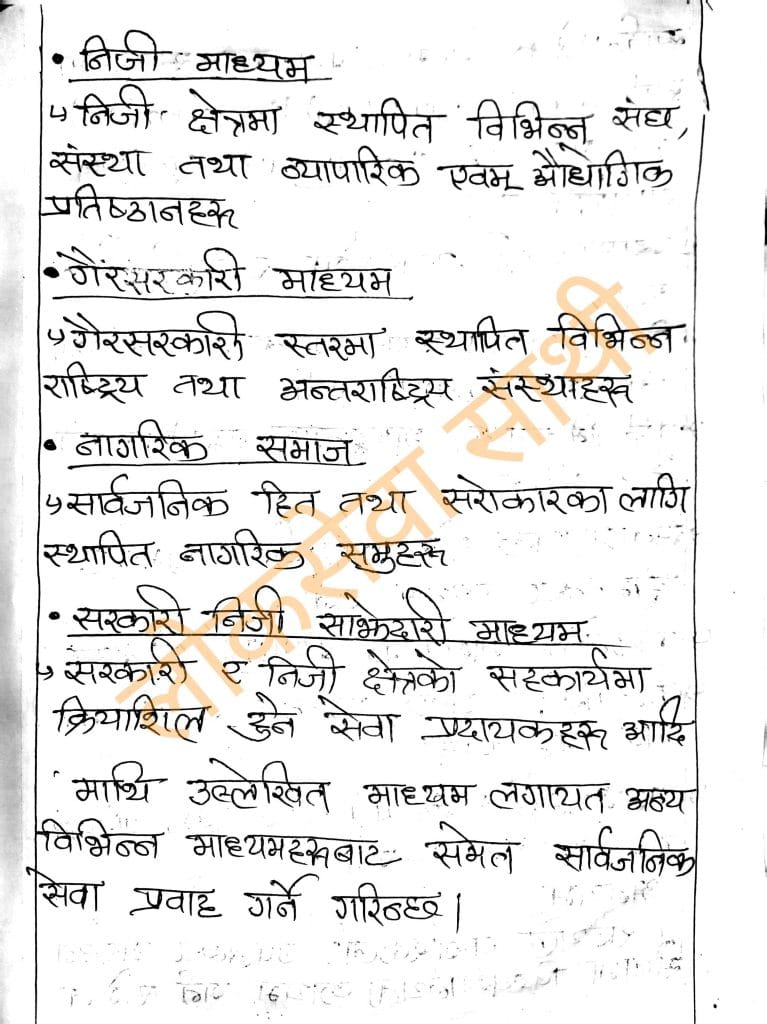 • निजी माध्यम
↳ निजी क्षेत्रमा स्थापित विभिन्न संघ,
संस्था तथा व्यापारिक एवम् औद्योगिक
प्रतिष्ठानहरू
• गैरसरकारी माध्यम
↳ गैरसरकारी स्तरमा स्थापित विभिन्न
राष्ट्रिय तथा अन्तराष्ट्रिय संस्थाहरू
• नागरिक समाज
↳ सार्वजनिक हित तथा सरोकारका लागि
स्थापित नागरिक समुहरू
• सरकारी निजी साझेदारी माध्यम
↳ सरकारी र निजी क्षेत्रको सहकार्यमा
क्रियाशिल हुने सेवा प्रदायकहरू आदि
माथि उल्लेखित माध्यम लगायत अन्य
विभिन्न माध्यमहरूबाट समेत सार्वजनिक
सेवा प्रवाह गर्ने गरिन्छ।
लोकसेवा साथी